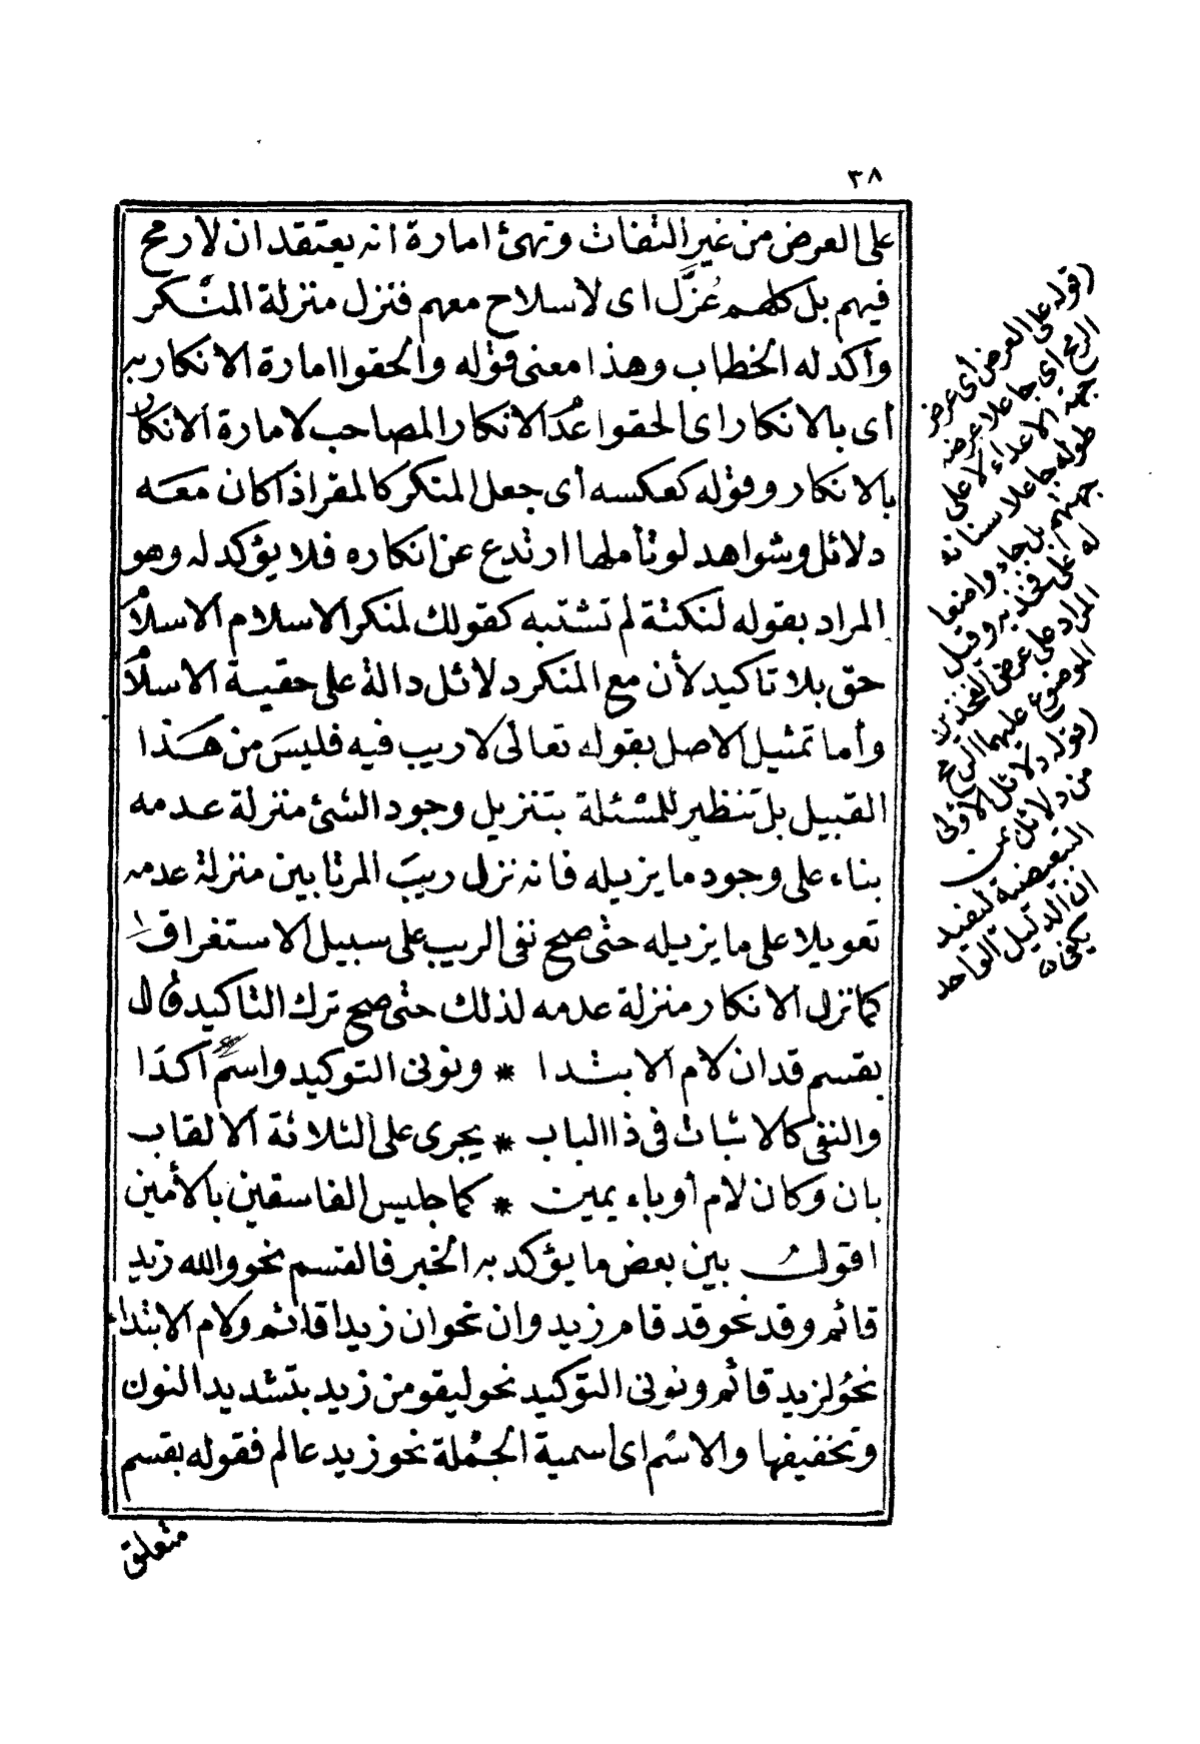 ٣٨
على العرض من غير التفات وتهئ امارة انه يعتقد ان لا رمح
فيهم بل كلهم عُزَّل اى لا سلاح معهم فنزل منزلة المنكر
وأكد له الخطاب وهذا معنى قوله والحقوا امارة الانكار به
أى بالانكار اى الحقوا عُدَ الانكار المصاحب لامارة الانكار
بالانكار وقوله كعكسه أى جعل المنكر كالمقر اذا كان معه
دلائل وشواهد لو تأملها ارتدع عن انكاره فلا يؤكد له وهو
المراد بقوله لنكتة لم تشتبه كقولك لمنكر الاسلام الاسلام
حق بلا تاكيد لأن مع المنكر دلائل دالة على حقية الاسلام
وأما تمثيل الاصل بقوله تعالى لا ريب فيه فليس من هذا
القبيل بل تنظير للمسئلة بتنزيل وجود الشئ منزلة عدمه
بناء على وجود ما يزيله فانه نزل ريب المرتابين منزلة عدمه
تعويلا على ما يزيله حتى صح نفى الريب على سبيل الاستغراق
كما نزل الانكار منزلة عدمه لذلك حتى صح ترك التاكيد قال
بقسم قد ان لام الابتدا * ونونى التوكيد واسم أكدا
والنفى كالاثبات فى ذا الباب * يجرى على الثلاثة الالقاب
بان وكان لام أو باء يمين * كما جليس الفاسقين بالأمين
اقول بين بعض ما يؤكد به الخبر فالقسم نحو والله زيد
قائم وقد نحو قد قام زيد وان نحو ان زيدا قائم ولام الابتداء
نحو لزيد قائم ونونى التوكيد نحو ليقومن زيد بتشديد النون
وتخفيفها والاسم اى أسمية الجملة نحو زيد عالم فقوله بقسم
متعلق
(قوله على العرض أى عرض
الرمح اى جاعلا عرضه
جهة الاعداء لا على
طوله جاعلا سنانه
جهتهم بل جاء واضعا
له على فخذيه وقيل
المراد على عرض الفخذين
الموضوع عليهما الرمح
(قوله دلائل الأولى
من دلائل من
التبعيضية ليفيد
ان الدليل الواحد
يكفى